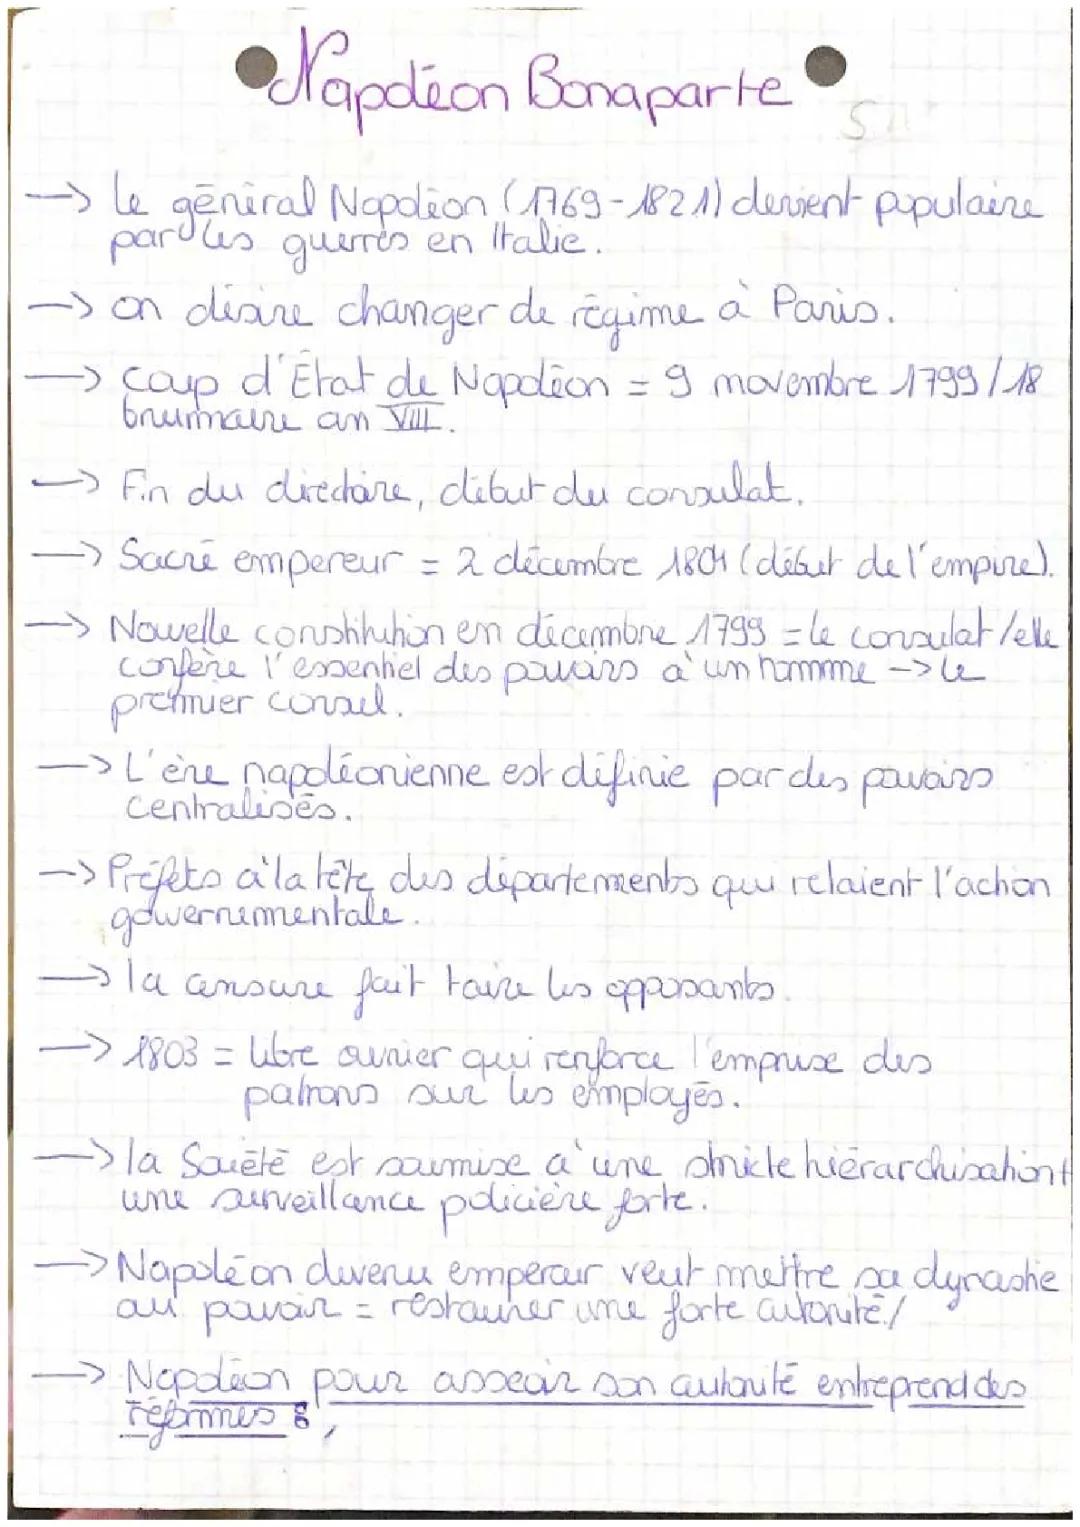 Napoléon Bonaparte
-> le général Napoléon (1769-1821) devient populaire
par les guerres en Italie.
-> on désire changer de régime à Paris.
-> coup d'État de Napoléon = 9 novembre 1799/18
brumaire an VIII.
-> Fin du directoire, début du consulat.
-> Sacré empereur = 2 décembre 1804 (début de l'empire).
-> Nouvelle constitution en décembre 1799 = le consulat/elle
confère l'essentiel des pouvoirs à un homme -> le
premier consul.
-> L'ère napoléonienne est définie par des pouvoirs
centralisés.
-> Préfets à la tête des départements qui relaient l'action
gouvernementale.
-> la censure fait taire les opposants.
-> 1803 = libre ouvrier qui renforce l'emprise des
patrons sur les employés.
-> la Société est soumise à une stricte hiérarchisation +
une surveillance policière forte.
-> Napoléon devenu empereur veut mettre sa dynastie
au pouvoir = restaurer une forte autorité/
-> Napoléon pour asseoir son autorité entreprend des
réformes :,